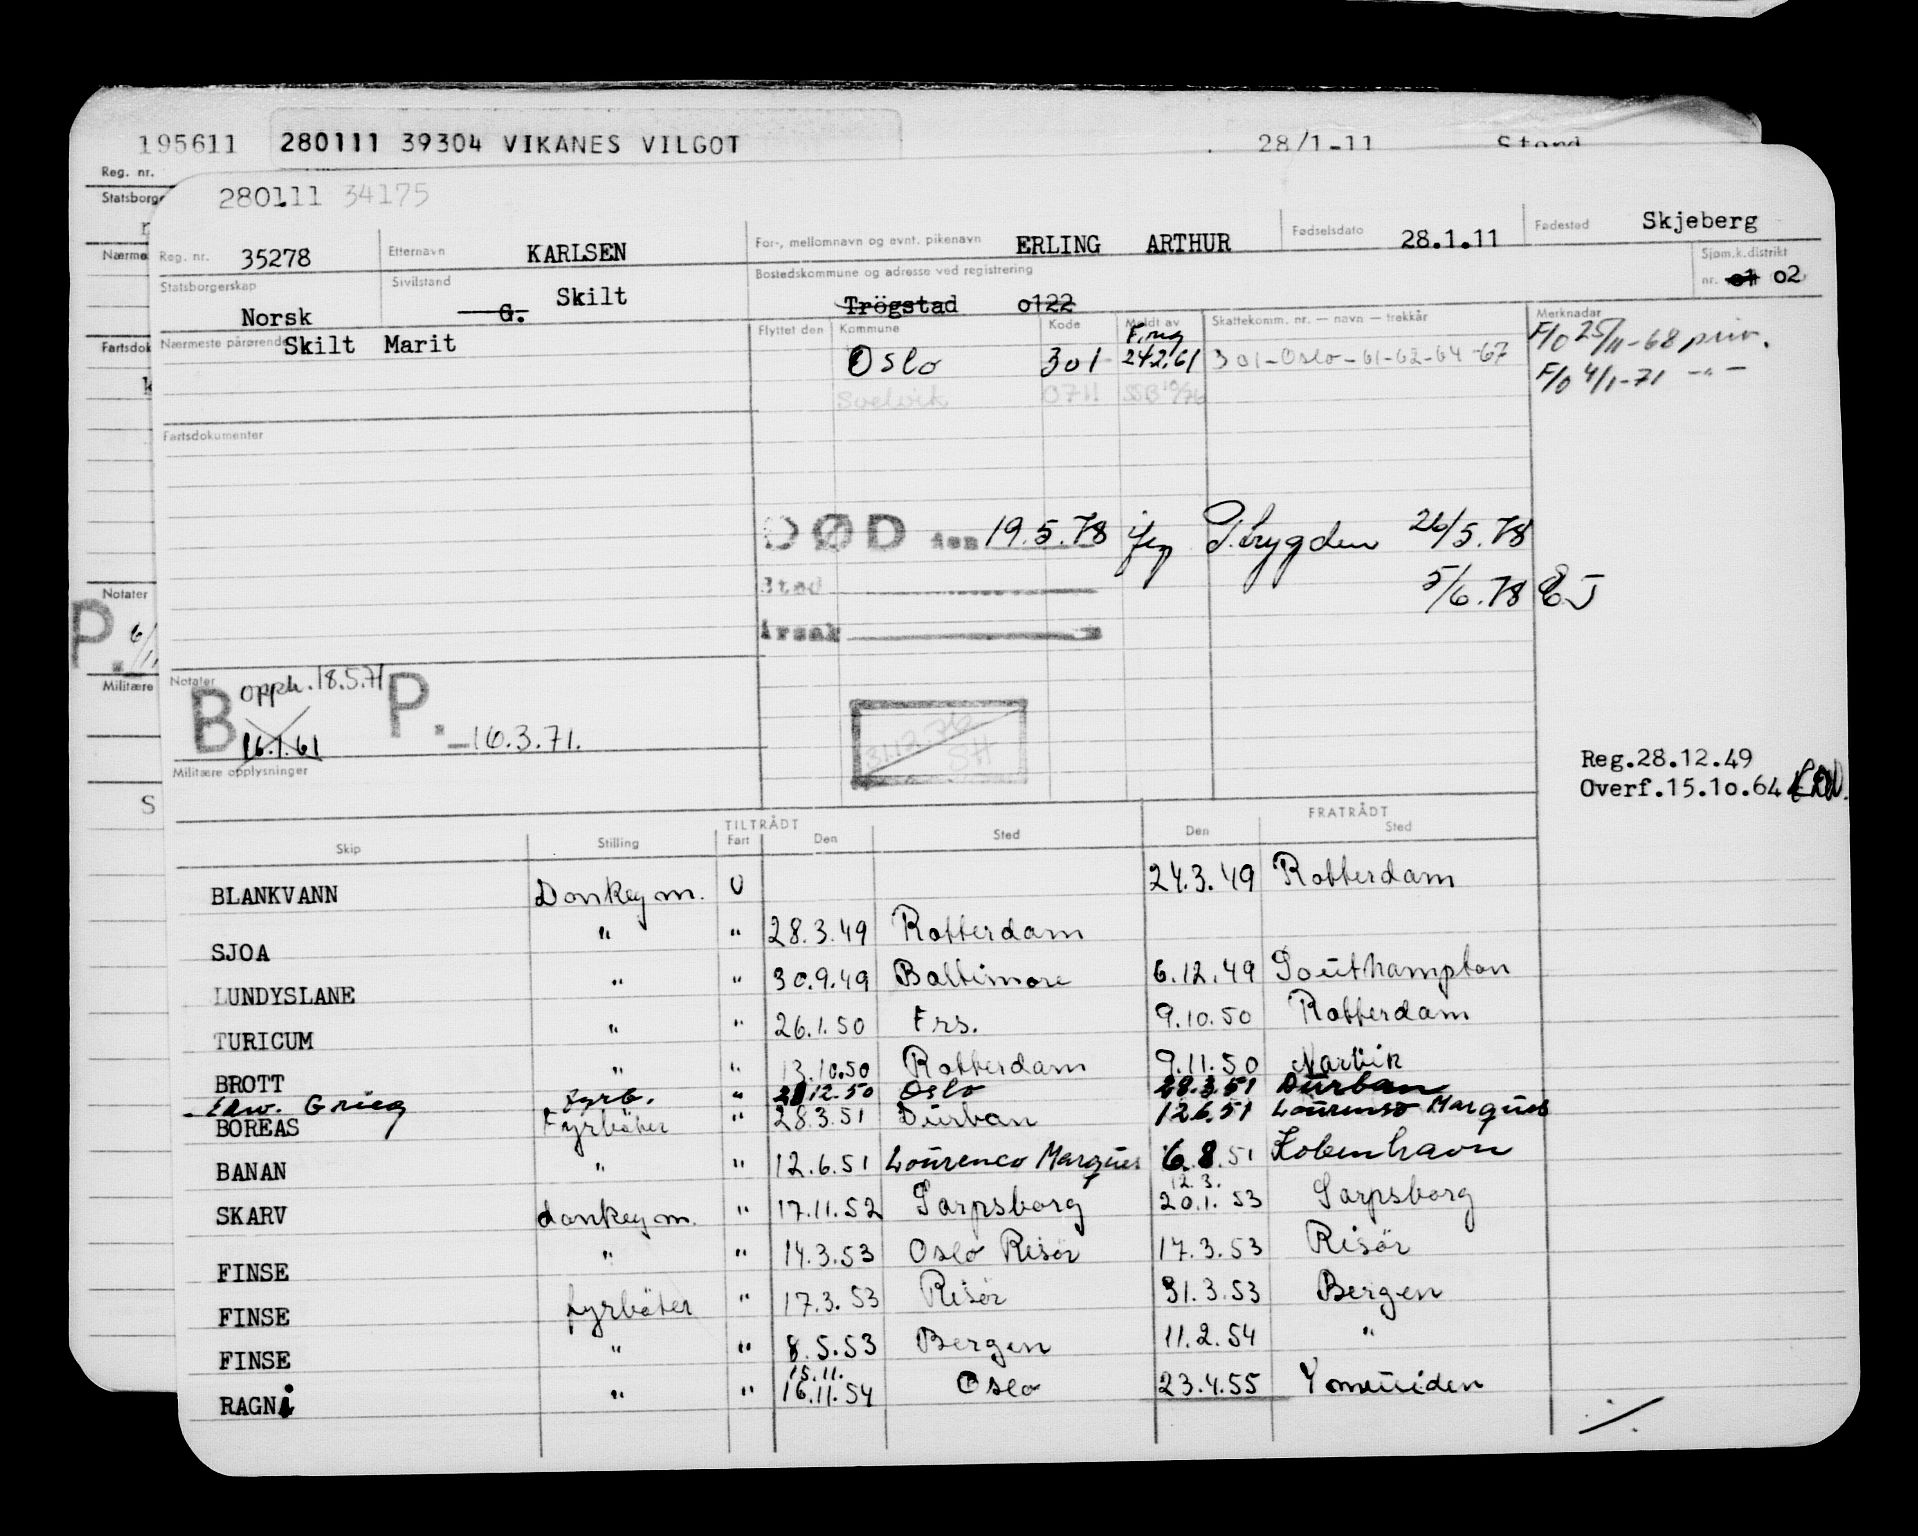 195611 280111 39304 VIKANES VILGOT 28/1-11 Stord
Reg. nr.
Statsborge
Nærme
Fartsdok
Notater
P. 6/1
Militære
S
280111 34175
Reg. nr. 35278 Etternavn KARLSEN For-, mellomnavn og evnt. pikenavn ERLING ARTHUR Fødselsdato 28.1.11 Fødested Skjeberg
Statsborgerskap Norsk Sivilstand G. Skilt Bostedskommune og adresse ved registrering Trögstad 0122 Sjøm.k.distrikt nr. 01 02
Nærmeste pårørende Skilt Marit Flyttet den Kommune Kode Meldt av Skattekomm. nr. — navn — trekkår Merknader
Oslo 301 F.reg 24.2.61 301-Oslo-61-62-64-67 F/O 25/11-68 priv.
Svelvik 0711 SSB 10/76 F/O 4/1-71 -"-
Fartsdokumenter
DØD den 19.5.78 iføg S.trygden 26/5.78
Sted 5/6.78 EJ
Årsak
Notater
B opph. 18.5.71 P. 16.3.71.
16.1.61
311276 SH
Militære opplysninger
Reg.28.12.49
Overf.15.1o.64
TILTRÅDT FRATRÅDT
Skip Stilling Fart Den Sted Den Sted
BLANKVANN Donkeym. U 24.3.49 Rotterdam
SJOA " " 28.3.49 Rotterdam
LUNDYSLANE " " 30.9.49 Baltimore 6.12.49 Southampton
TURICUM " " 26.1.50 Frs. 9.10.50 Rotterdam
BROTT " " 13.10.50 Rotterdam 9.11.50 Narvik
Edw. Grieg fyrb. " 21.12.50 Oslo 28.3.51 Durban
BOREAS Fyrböter " 28.3.51 Durban 12.6.51 Lourenso Marques
BANAN " " 12.6.51 Lourenco Marques 6.8.51 Kobenhavn
12.3.
SKARV donkeym. " 17.11.52 Sarpsborg 20.1.53 Sarpsborg
FINSE " " 14.3.53 Oslo Risör 17.3.53 Risör
FINSE fyrböter " 17.3.53 Risör 31.3.53 Bergen
FINSE " " 8.5.53 Bergen 11.2.54 "
15.11.
RAGNi " " 16.11.54 Oslo 23.4.55 Ymuiden
./.